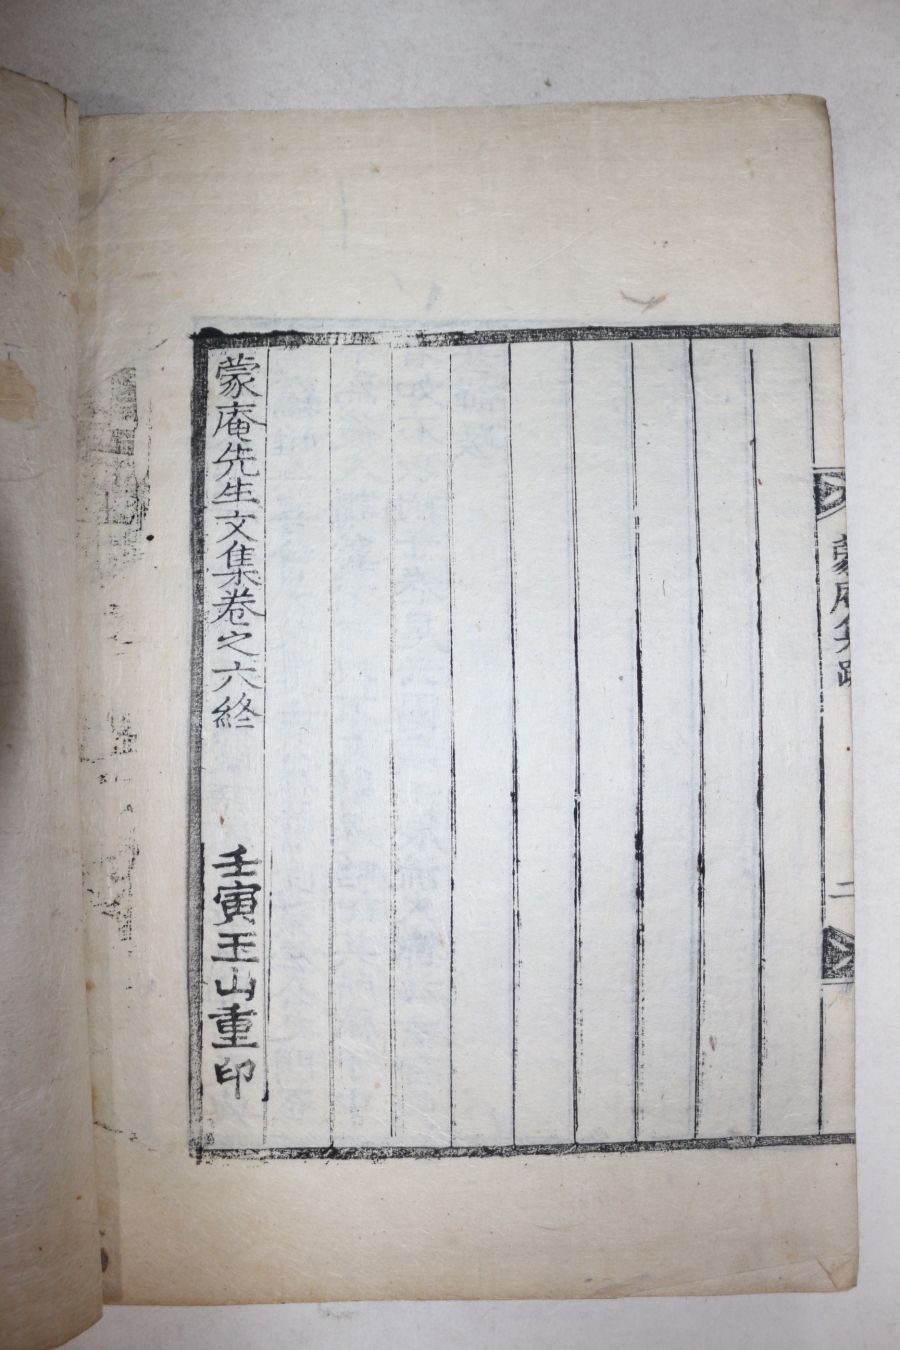 蒙庵集跋
二
蒙庵先生文集卷之六終
壬寅玉山重印